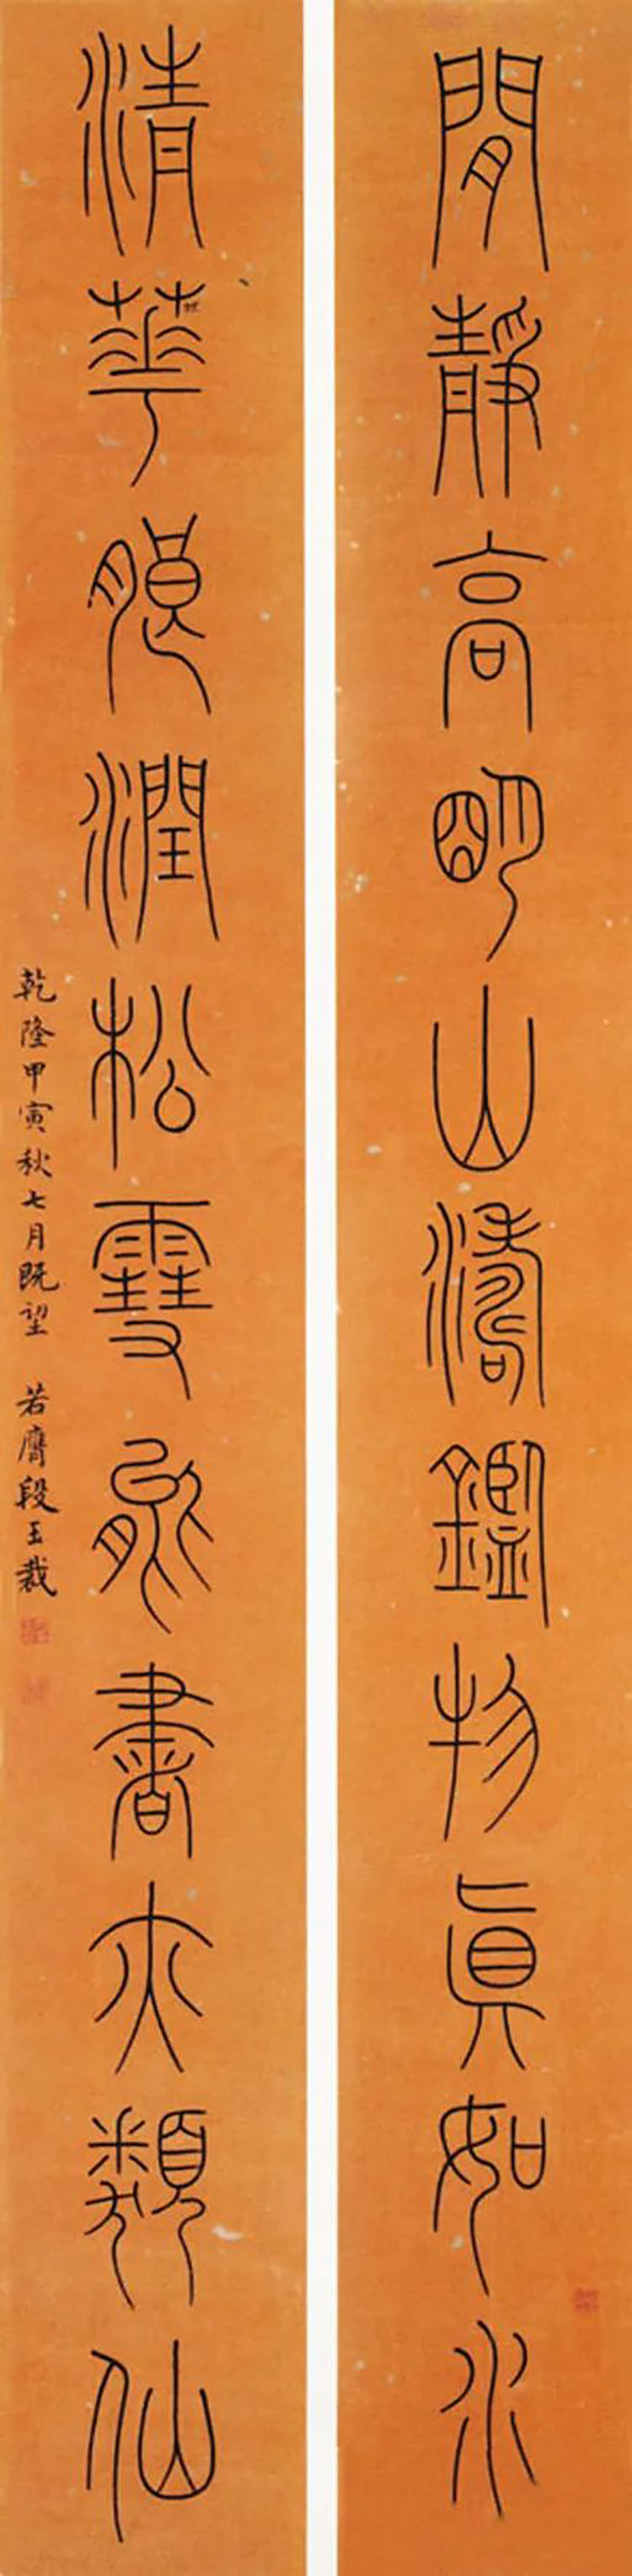 閒靜高明山濤鑑物眞如水
清華朖潤松雪能書亦類仙
乾隆甲寅秋七月既望 若膺段玉裁